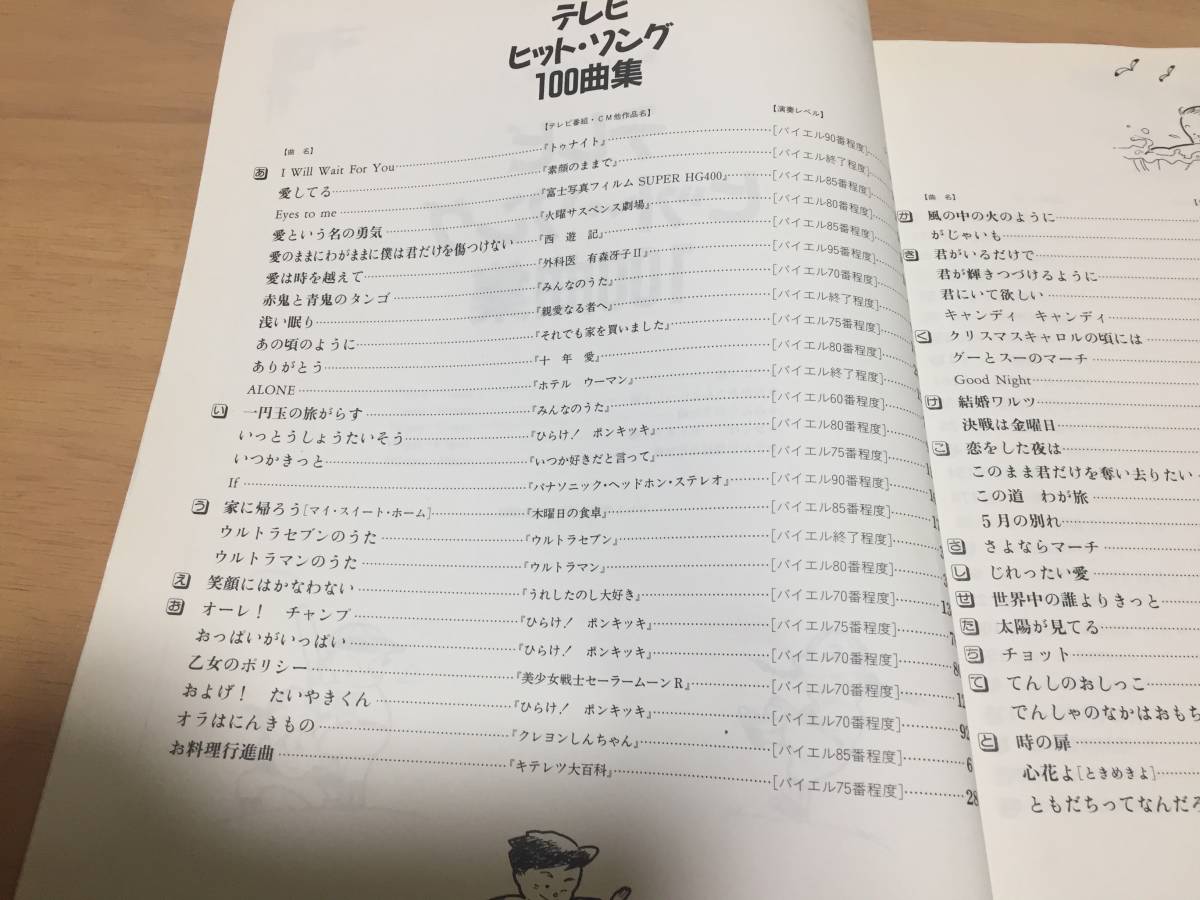 テレビ
ヒット・ソング
100曲集
【曲 名】 【テレビ番組・CM他作品名】 【演奏レベル】
あ I Will Wait For You 『トゥナイト』 [バイエル90番程度]
愛してる 『素顔のままで』 [バイエル終了程度]
Eyes to me 『富士写真フィルム SUPER HG400』 [バイエル85番程度]
愛という名の勇気 『火曜サスペンス劇場』 [バイエル80番程度]
愛のままにわがままに僕は君だけを傷つけない 『西 遊 記』 [バイエル85番程度]
愛は時を越えて 『外科医 有森冴子II』 [バイエル95番程度]
赤鬼と青鬼のタンゴ 『みんなのうた』 [バイエル70番程度]
浅い眠り 『親愛なる者へ』 [バイエル終了程度]
あの頃のように 『それでも家を買いました』 [バイエル75番程度]
ありがとう 『十 年 愛』 [バイエル80番程度]
ALONE 『ホテル ウーマン』 [バイエル終了程度]
い 一円玉の旅がらす 『みんなのうた』 [バイエル60番程度]
いっとうしょうたいそう 『ひらけ! ポンキッキ』 [バイエル80番程度]
いつかきっと 『いつか好きだと言って』 [バイエル75番程度]
If 『パナソニック・ヘッドホン・ステレオ』 [バイエル90番程度]
う 家に帰ろう[マイ・スイート・ホーム] 『木曜日の食卓』 [バイエル85番程度]
ウルトラセブンのうた 『ウルトラセブン』 [バイエル終了程度]
ウルトラマンのうた 『ウルトラマン』 [バイエル80番程度]
え 笑顔にはかなわない 『うれしたのし大好き』 [バイエル70番程度]
お オーレ! チャンプ 『ひらけ! ポンキッキ』 [バイエル75番程度]
おっぱいがいっぱい 『ひらけ! ポンキッキ』 [バイエル70番程度]
乙女のポリシー 『美少女戦士セーラームーンR』 [バイエル70番程度]
およげ! たいやきくん 『ひらけ! ポンキッキ』 [バイエル70番程度]
オラはにんきもの 『クレヨンしんちゃん』 [バイエル85番程度]
お料理行進曲 『キテレツ大百科』 [バイエル75番程度] 28
【曲 名】
か 風の中の火のように
がじゃいも
き 君がいるだけで
君が輝きつづけるように
君にいて欲しい
キャンディ キャンディ
く クリスマスキャロルの頃には
グーとスーのマーチ
Good Night
け 結婚ワルツ
決戦は金曜日
こ 恋をした夜は
このまま君だけを奪い去りたい
この道 わが旅
5月の別れ
さ さよならマーチ
し じれったい愛
せ 世界中の誰よりきっと
た 太陽が見てる
ち チョット
て てんしのおしっこ
でんしゃのなかはおもち
と 時の扉
心花よ[ときめきよ]
ともだちってなんだろ